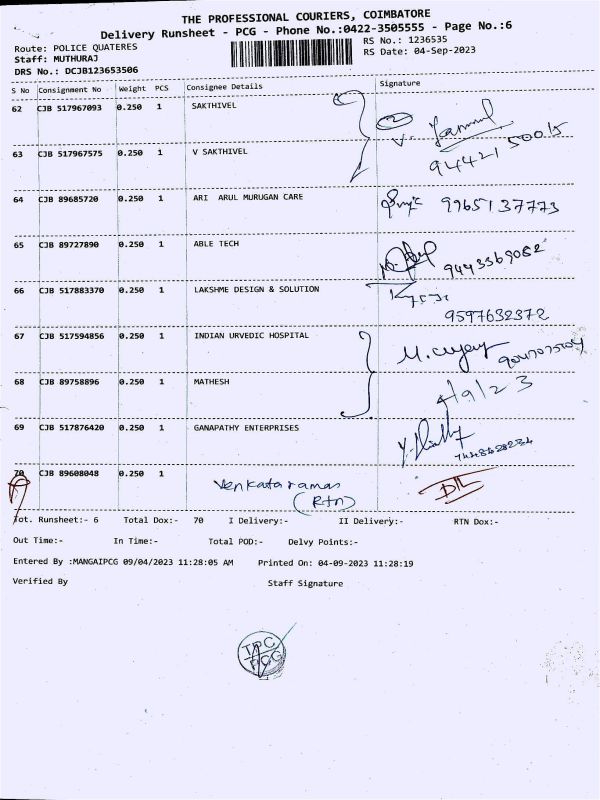 THE PROFESSIONAL COURIERS, COIMBATORE
Delivery Runsheet - PCG - Phone No.:0422-3505555 - Page No.:6
Route: POLICE QUATERES
RS No.: 1236535
Staff: MUTHURAJ
RS Date: 04-Sep-2023
DRS No.: DCJB123653506
S No Consignment No Weight PCS Consignee Details Signature
62 CJB 517967093 0.250 1 SAKTHIVEL
63 CJB 517967575 0.250 1 V SAKTHIVEL
94421 50015
64 CJB 89685720 0.250 1 ARI ARUL MURUGAN CARE 9965137773
65 CJB 89727890 0.250 1 ABLE TECH
9443369082
66 CJB 517883370 0.250 1 LAKSHME DESIGN & SOLUTION
9597632372
67 CJB 517594856 0.250 1 INDIAN URVEDIC HOSPITAL
68 CJB 89758896 0.250 1 MATHESH 4/9/23
69 CJB 517876420 0.250 1 GANAPATHY ENTERPRISES
70 CJB 89608048 0.250 1 Venkataraman
(Rtn)
Tot. Runsheet:- 6 Total Dox:- 70 I Delivery:- II Delivery:- RTN Dox:-
Out Time:- In Time:- Total POD:- Delvy Points:-
Entered By :MANGAIPCG 09/04/2023 11:28:05 AM Printed On: 04-09-2023 11:28:19
Verified By Staff Signature
TPC
PCG